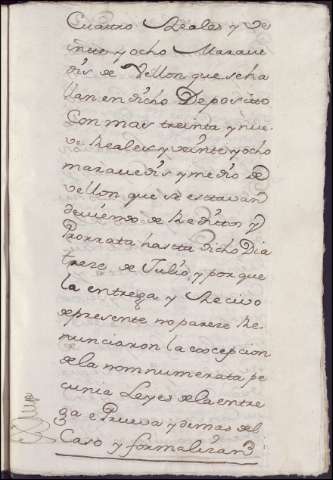 Cuatro Reales y ve
inte y ocho Marave
dis de Vellon que se ha
llan en dicho Deposito
Con mas treinta y nue
ve Reales y veinte y ocho
maravedis y medio de
vellon que se estavan
deviendo de Reditos y
Prorrata hasta dicho Dia
trece de Julio, y por que
la entrega y Recivo
de presente no parece Re
nunciaron la excepcion
de la non numerata pe
cunia Leyes de la entre
ga e Prueva y demas del
Caso y formalizan